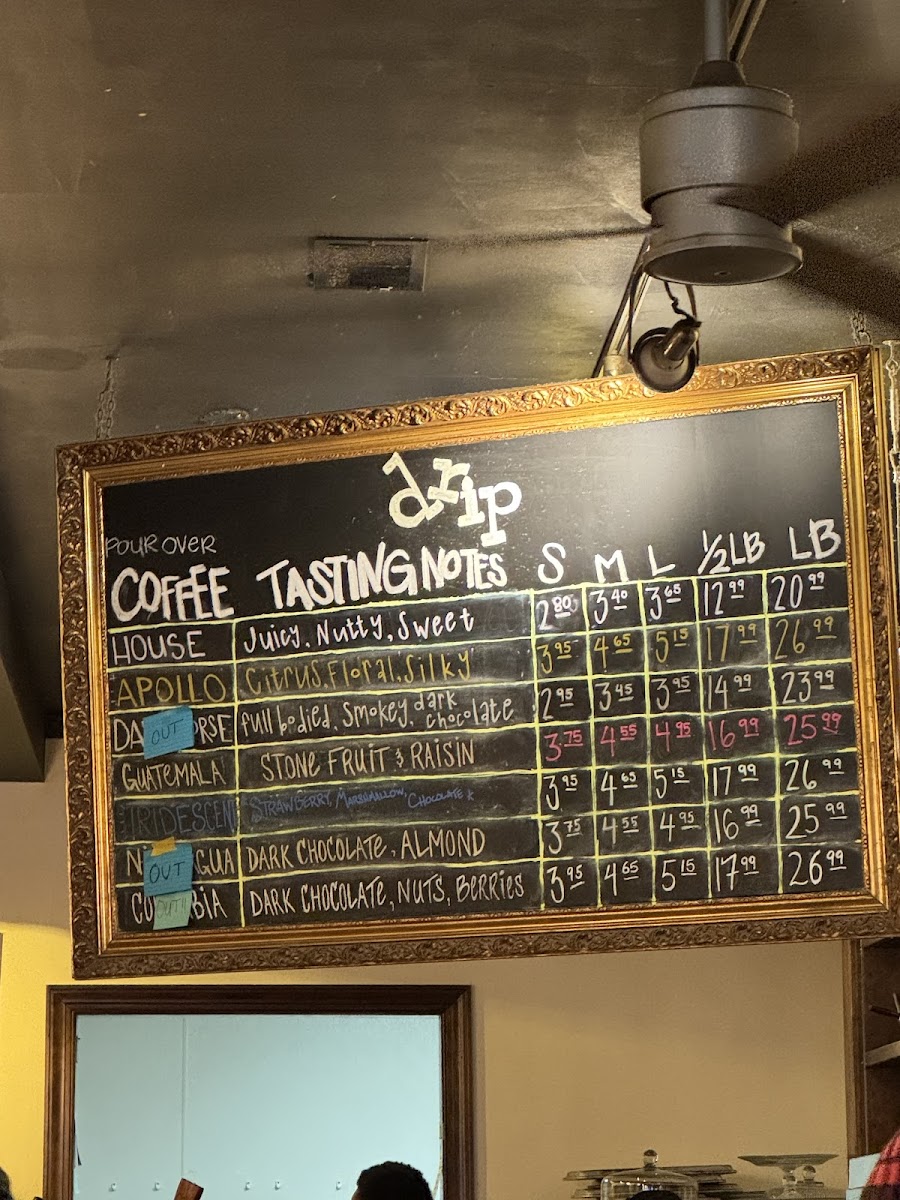 drip
POUR OVER
COFFEE TASTING NOTES S M L ½LB LB
HOUSE Juicy, Nutty, Sweet 2.80 3.40 3.65 12.99 20.99
APOLLO Citrus, Floral, Silky 3.95 4.65 5.15 17.99 26.99
DA OUT ORSE full bodied, smokey, dark chocolate 2.95 3.45 3.95 14.99 23.99
GUATEMALA STONE FRUIT & RAISIN 3.75 4.55 4.95 16.99 25.99
IRIDESCENT STRAWBERRY, MARSHMALLOW, CHOCOLATE 3.95 4.65 5.15 17.99 26.99
NI OUT AGUA DARK CHOCOLATE, ALMOND 3.75 4.55 4.95 16.99 25.99
CO OUT!! BIA DARK CHOCOLATE, NUTS, BERRIES 3.95 4.65 5.15 17.99 26.99